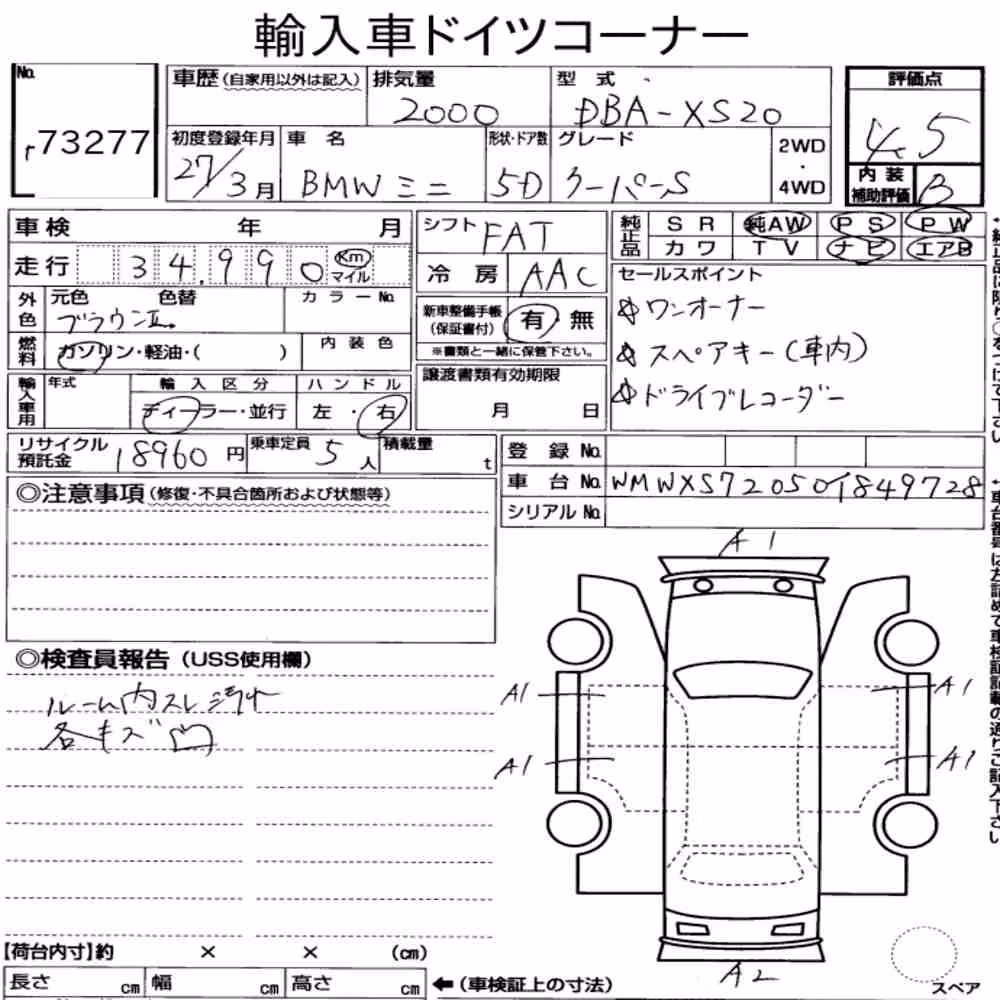 輸入車ドイツコーナー
No.
73277
車歴(自家用以外は記入)
排気量
2000
型式
DBA-XS20
評価点
4.5
初度登録年月
27/3月
車名
BMWミニ
形状・ドア数
5D
グレード
クーパーS
2WD
・
4WD
内装
補助評価
B
車検 年 月
シフト
FAT
純正品
SR 純AW PS PW
カワ TV ナビ エアB
走行
34,990
Km
マイル
冷房
AAC
セールスポイント
☆ワンオーナー
☆スペアキー(車内)
☆ドライブレコーダー
外色
元色 色替
ブラウンⅡ
カラーNo
新車整備手帳
(保証書付)
有・無
※書類と一緒に保管下さい。
燃料
ガソリン・軽油・( )
内装色
輸入車用
年式
輸入区分
ディーラー・並行
ハンドル
左・右
譲渡書類有効期限
月 日
リサイクル
預託金
18960円
乗車定員
5人
積載量
t
登録No.
車台No.
WMWXS72050T849728
シリアルNo.
◎注意事項(修復・不具合箇所および状態等)
◎検査員報告(USS使用欄)
ルーム内スレ汚れ
各キズ凹
A1
A1
A1
A1
A1
A2
スペア
【荷台内寸】約 × × (cm)
長さ cm 幅 cm 高さ cm
←(車検証上の寸法)
↑純正品に限り○をつけて下さい
↑車台番号は左詰めで車検証記載の通りご記入下さい